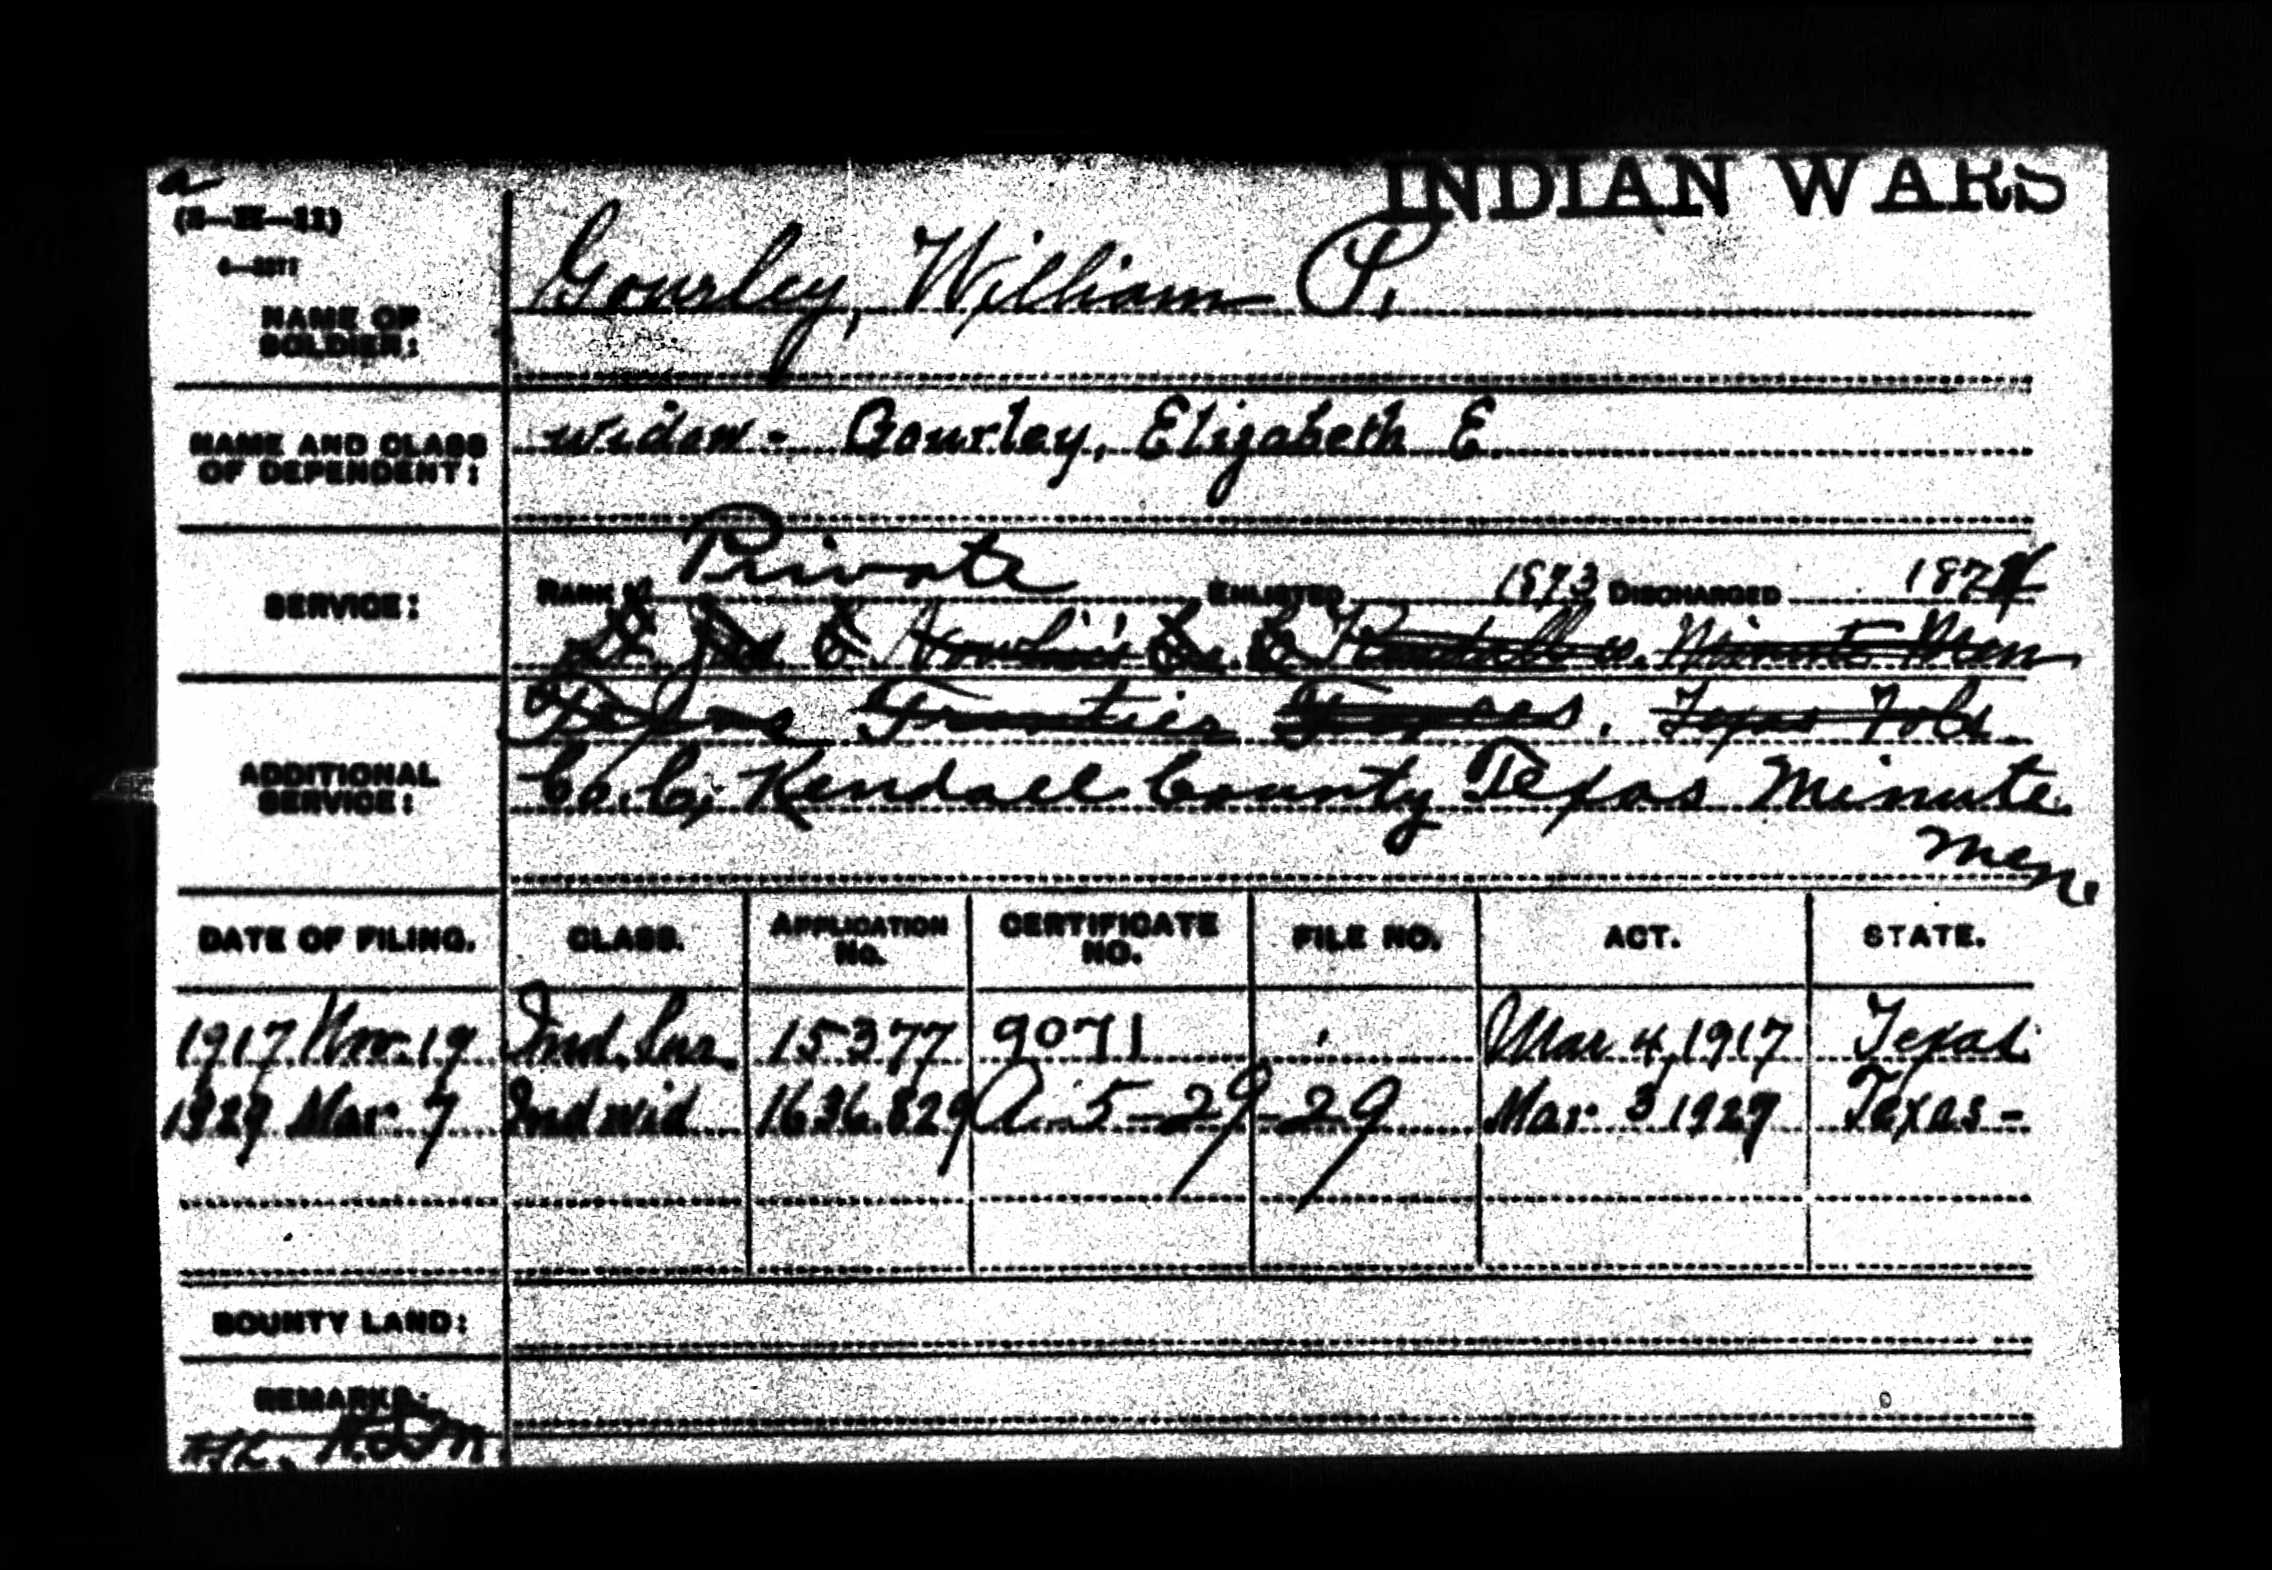 INDIAN WARS
NAME OF
SOLDIER:
Gourley, William P.
NAME AND CLASS
OF DEPENDENT:
widow - Gourley, Elizabeth E.
SERVICE:
RANK Private ENLISTED 1873 DISCHARGED 1874
Lt. Co. C Kendall Co. Minute Men
Frontier Forces. Texas Vols.
ADDITIONAL
SERVICE:
Co. C, Kendall County Texas Minute
Men.
DATE OF FILING. CLASS. APPLICATION NO. CERTIFICATE NO. FILE NO. ACT. STATE.
1917 Nov. 19 Ind. Sur. 15377 9071 Mar 4, 1917 Texas.
1929 Mar. 7 Ind wid 1636.829 A-5-29-29 Mar 3 1927 Texas-
BOUNTY LAND:
REMARKS: